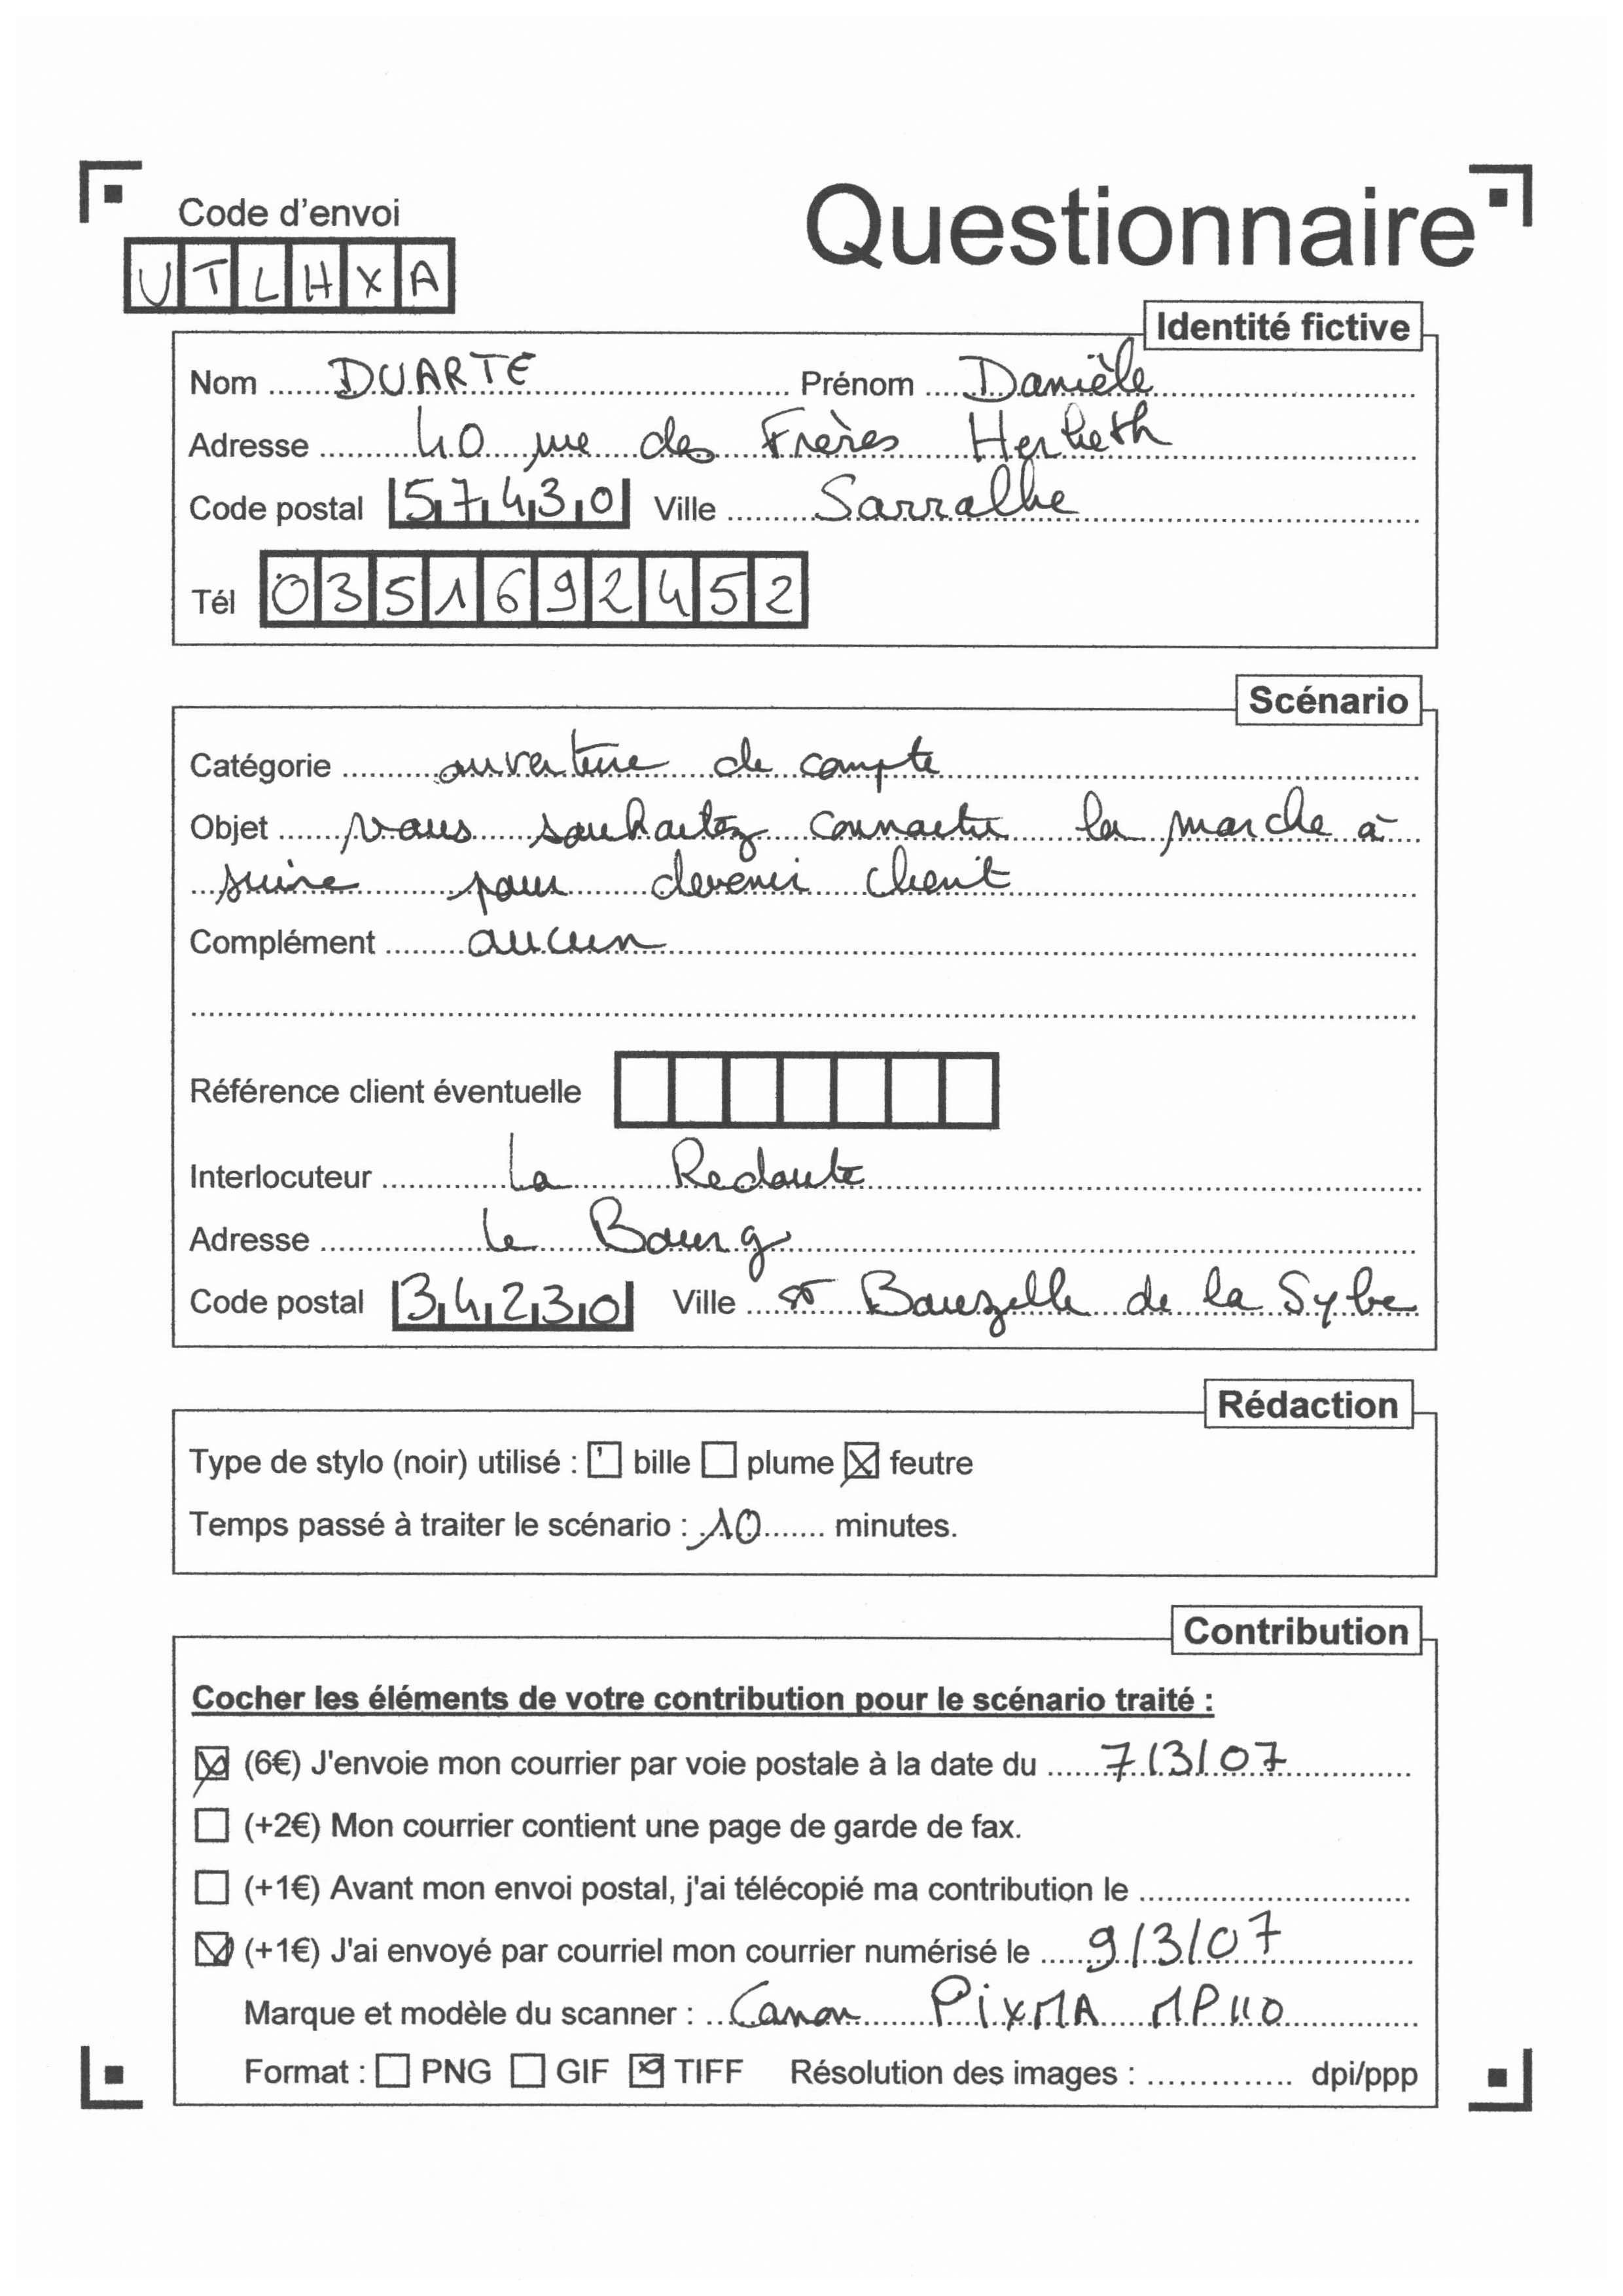 Code d'envoi
Questionnaire
UTLHXA
Identité fictive
Nom DUARTE Prénom Danièle
Adresse 40 rue des Frères Herbeth
Code postal 57430 Ville Sarralbe
Tél 0351692452
Scénario
Catégorie ouverture de compte
Objet vous souhaitez connaitre la marche à
suivre pour devenir client
Complément aucun
Référence client éventuelle
Interlocuteur La Redoute
Adresse le Bourg
Code postal 34230 Ville St Bauzelle de la Sylve
Rédaction
Type de stylo (noir) utilisé : bille plume feutre
Temps passé à traiter le scénario : 10 minutes.
Contribution
Cocher les éléments de votre contribution pour le scénario traité :
(6€) J'envoie mon courrier par voie postale à la date du 7/3/07
(+2€) Mon courrier contient une page de garde de fax.
(+1€) Avant mon envoi postal, j'ai télécopié ma contribution le
(+1€) J'ai envoyé par courriel mon courrier numérisé le 9/3/07
Marque et modèle du scanner : Canon PixMA MP110
Format : PNG GIF TIFF Résolution des images : dpi/ppp